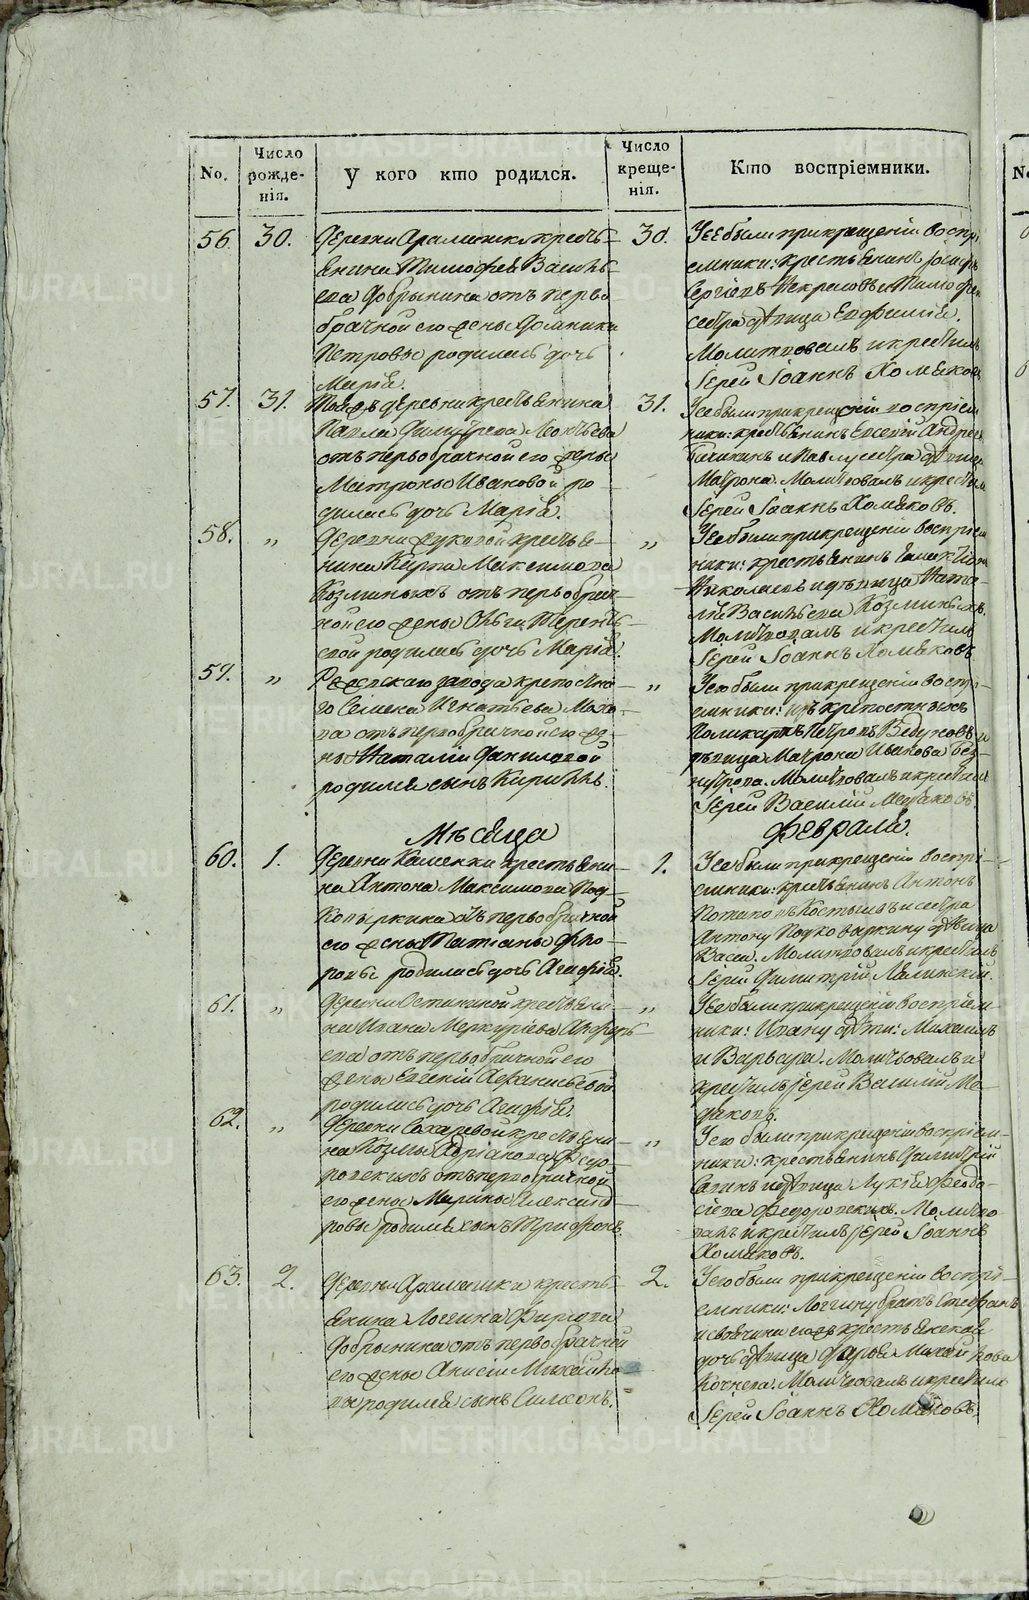 No.
Число рожде-нія.
У кого кто родился.
Число креще-нія.
Кто воспріемники.
No
56. 30.
Деревни Арамашки кресть-
янина Тимофея Василь-
ева Добрынина отъ перво
брачной его жены Домники
Петровы родилась дочь
Марія.
30.
У ее были при крещеніи воспрі
емники: крестьянинъ
Сергіевъ Некрасовъ и Тимофея
сестра дѣвица Евфимія.
Молитвовалъ и крестилъ
Іерей Іоаннъ Хомяковъ
57. 31.
Той жъ деревни крестьянина
Павла Димитрева Леонтьева
отъ первобрачной его жены
Матроны Ивановой ро
дилась дочь Марія.
31.
У ее были при крещеніи воспріем
ники: крестьянинъ Евсевій Андрее
и Павлу сестра дѣвица
Матрона. Молитвовалъ и крестилъ
Іерей Іоаннъ Хомяковъ.
58. „
Деревни Луковой крестья-
нина Карпа Максимова
Козминыхъ отъ первобрач
ной его жены Ольги Терень-
евой родилась дочь Марія.
„
У ее были при крещеніи воспріем
ники: крестьянинъ
Николаевъ и дѣвица Ната-
лія Васильева Козминыхъ.
Молитвовалъ и крестилъ
Іерей Іоаннъ Хомяковъ
59. „
Режевскаго завода крепостна-
го Семена Игнатьева
отъ первобрачной его же-
ны Наталіи Даниловой
родился сынъ Кириллъ.
„
У его были при крещеніи воспрі-
емники: изъ крепостныхъ
Поликарпъ Петровъ Ведуновъ и
дѣвица Матрона Иванова
Молитвовалъ и крестилъ
Іерей Василій
Мѣсяца
Февраля.
60. 1.
Деревни Каменки крестьяни-
на Антона Максимова Под-
копыркина отъ первобрачной
его жены Татіаны Фло-
ровы родилась дочь Агафія.
1.
У ее были при крещеніи воспрі-
емники: крестьянинъ Антонъ
Потаповъ Костылевъ и сестра
Антону дѣвица
Васса. Молитвовалъ и крестилъ
Іерей Димитрій
61. „
Деревни Останиной крестьяни-
на Ивана Меркуріева
отъ первобрачной его
жены Евгеніи Афанасьевой
родилась дочь Агафія.
„
У ее были при крещеніи воспріем-
ники: Ивану дѣти: Михаилъ
и Варвара. Молитвовалъ и
крестилъ Іерей Василій
62. „
Деревни Сохаревой крестьяни-
на Козмы Адріанова Федо-
ровскихъ отъ первобрачной
его жены Марины Александ-
ровы родился сынъ Трифонъ.
„
У его были при крещеніи воспріем-
ники: крестьянинъ Димитрій
и дѣвица Лукія Феодо-
сіева Федоровскихъ. Молитво
валъ и крестилъ Іерей Іоаннъ
Хомяковъ.
63. 2.
Деревни Арамашки кресть-
янина Логгина Фирсова
Добрынина отъ первобрачной
его жены Анисіи Михайло-
вы родился сынъ Симеонъ.
2.
У его были при крещеніи воспрі-
емники: Логгину братъ Стефанъ
дочь дѣвица Дарья Михайлова
Кочнева. Молитвовалъ и крестилъ
Іерей Іоаннъ Хомяковъ.
METRIKI.GASO-URAL.RU